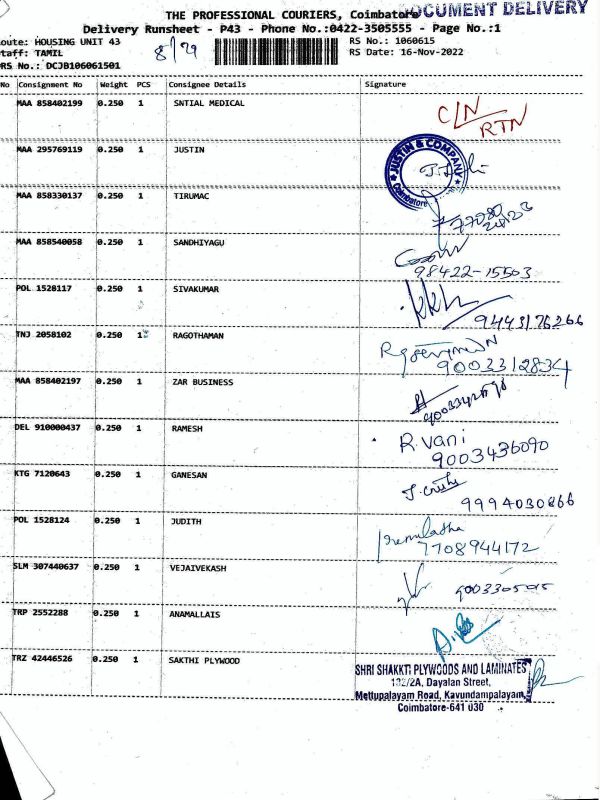 THE PROFESSIONAL COURIERS, Coimbatore DOCUMENT DELIVERY
Delivery Runsheet - P43 - Phone No.:0422-3505555 - Page No.:1
oute: HOUSING UNIT 43 8/29 RS No.: 1060615
taff: TAMIL RS Date: 16-Nov-2022
RS No.: DCJB106061501
No Consignment No Weight PCS Consignee Details Signature
MAA 858402199 0.250 1 SNTIAL MEDICAL C/N RTN
MAA 295769119 0.250 1 JUSTIN JUSTIN & COMPANY Coimbatore
MAA 858330137 0.250 1 TIRUMAC
MAA 858540058 0.250 1 SANDHIYAGU 98422-15503
POL 1528117 0.250 1 SIVAKUMAR 9443176266
TNJ 2058102 0.250 1 RAGOTHAMAN 9003312834
MAA 858402197 0.250 1 ZAR BUSINESS
DEL 910000437 0.250 1 RAMESH R.vani 9003436090
KTG 7120643 0.250 1 GANESAN
POL 1528124 0.250 1 JUDITH 7708944172
SLM 307440637 0.250 1 VEJAIVEKASH
TRP 2552288 0.250 1 ANAMALLAIS
TRZ 42446526 0.250 1 SAKTHI PLYWOOD SHRI SHAKKTI PLYWOODS AND LAMINATES
132/2A, Dayalan Street,
Mettupalayam Road, Kavundampalayam,
Coimbatore-641 030